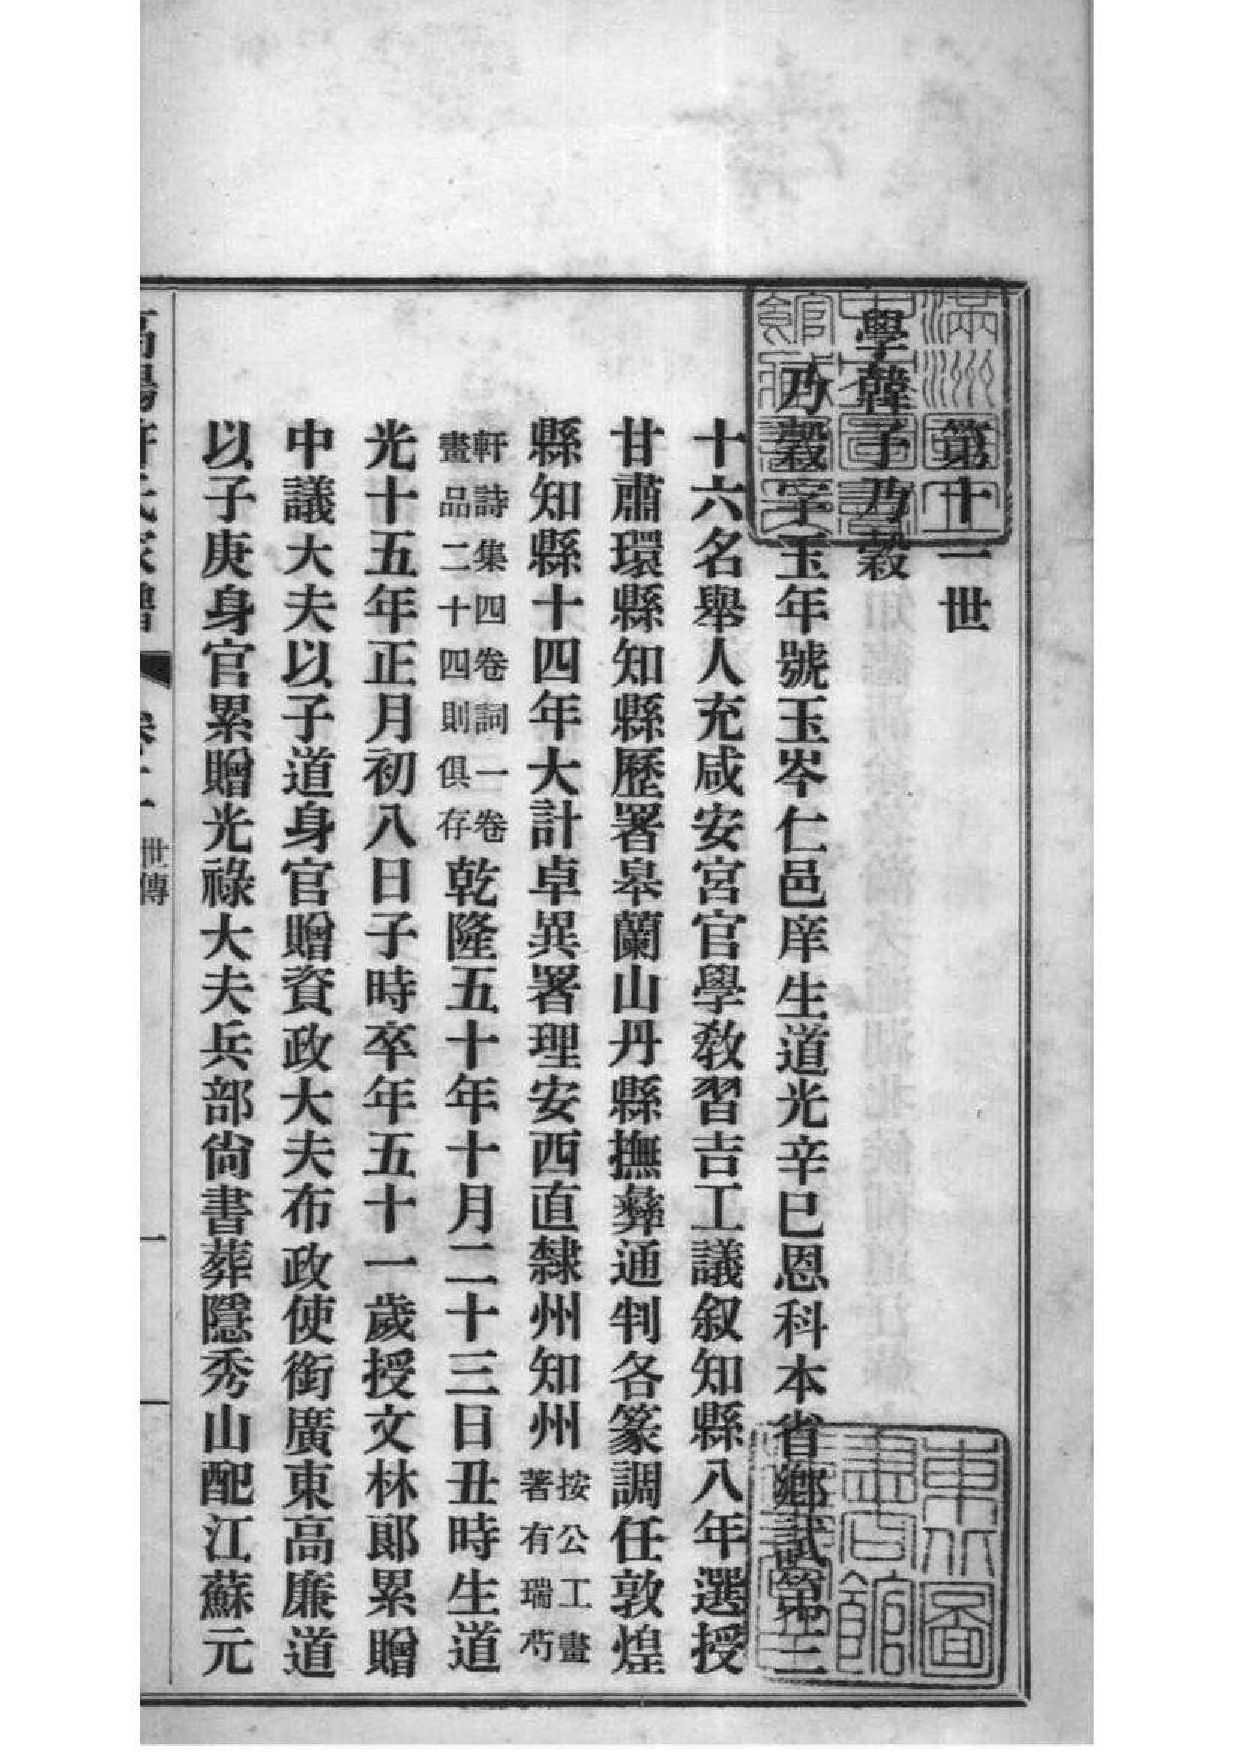 第十一世
學韓子乃穀
乃穀字玉年號玉岑仁邑庠生道光辛巳恩科本省鄉試第三
十六名舉人充咸安宮官學教習吉工議叙知縣八年選授
甘肅環縣知縣歷署皋蘭山丹縣撫彝通判各篆調任敦煌
縣知縣十四年大計卓異署理安西直隸州知州按公工畫著有瑞芍
軒詩集四卷詞一卷畫品二十四則俱存乾隆五十年十月二十三日丑時生道
光十五年正月初八日子時卒年五十一歲授文林郎累贈
中議大夫以子道身官贈資政大夫布政使銜廣東高廉道
以子庚身官累贈光祿大夫兵部尙書葬隱秀山配江蘇元
高陽許氏家譜 卷十一 世傳 一